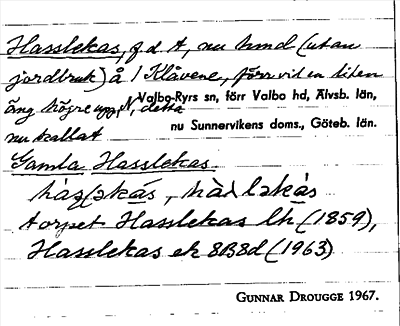 Hasslekas, f.d. t, nu hmd (utan
jordbruk) å 1 Klåvene, förr vid en liten
äng högre upp, N, detta
Valbo-Ryrs sn, förr Valbo hd, Älvsb. län,
nu kallat
nu Sunnervikens doms., Göteb. län.
Gamla Hasslekas.
torpet Hasslekas lh (1859),
Hasslekas ek 8B8d (1963)
GUNNAR DROUGGE 1967.